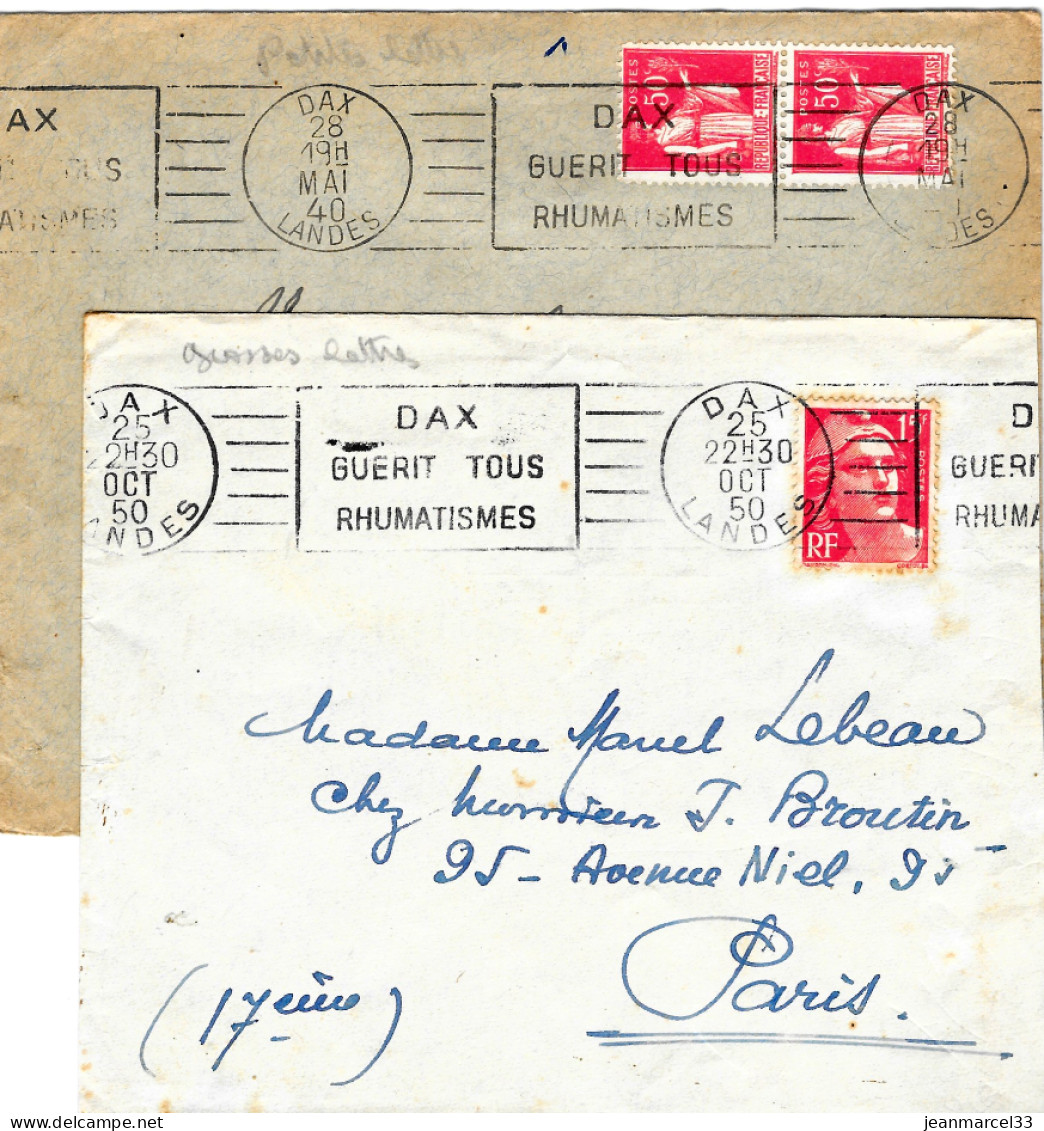 petites lettres
DAX
28
19H
MAI
40
LANDES
AX
TOUS
MATISMES
DAX
GUERIT TOUS
RHUMATISMES
POSTES 50c
REPUBLIQUE·FRANÇAISE
POSTES 50c
REPUBLIQUE·FRANÇAISE
DAX
28
19H
MAI
DES
grosses lettres
DAX
25
22H30
OCT
50
LANDES
DAX
GUERIT TOUS
RHUMATISMES
DAX
25
22H30
OCT
50
LANDES
15F
POSTES
RF
D
GUERI
RHUMA
Madame Marcel Lebeau
Chez Monsieur J. Broutin
95 - Avenue Niel, 95
Paris.
(17ème)
jeanmarcel33